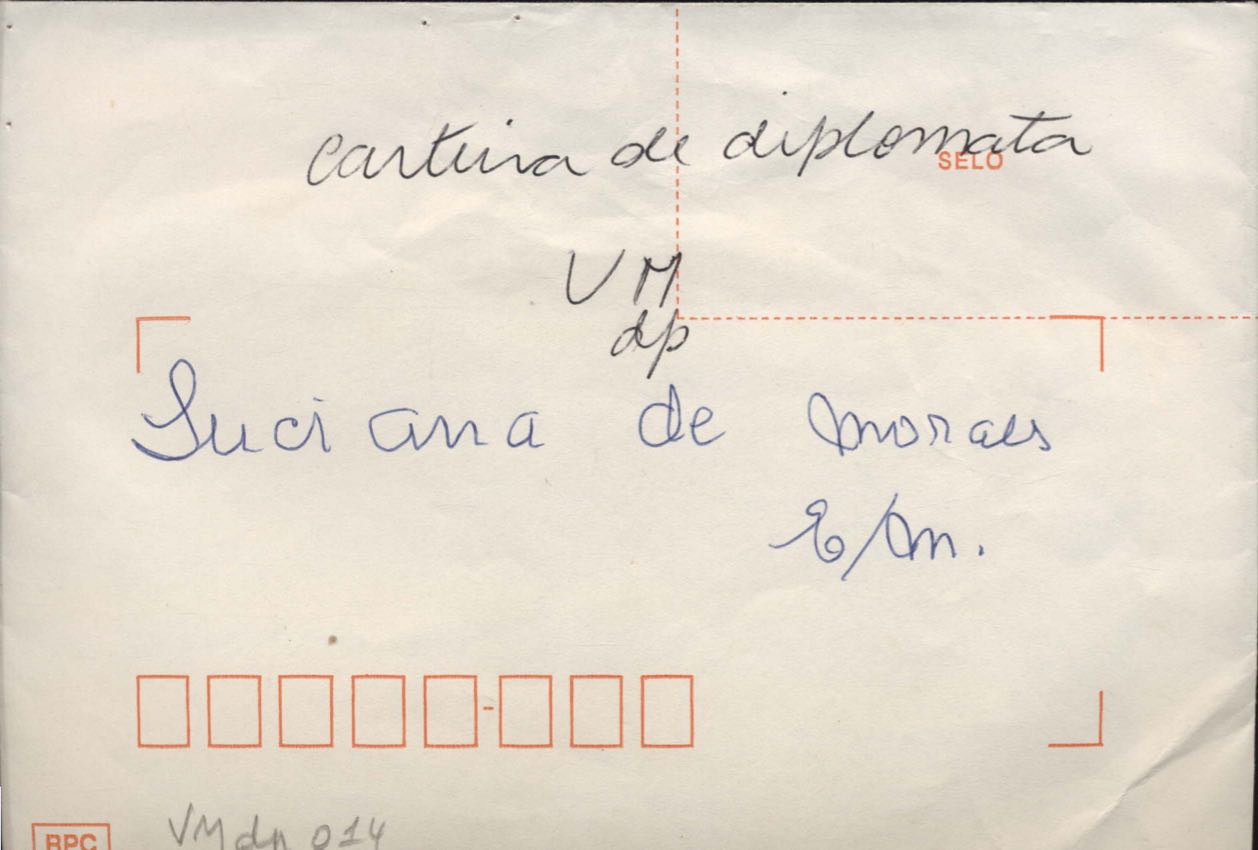 carteira de diplomata
SELO
VM
dp
Luciana de Moraes
E/M.
BPC
VMdp 014